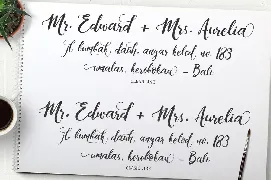 Mr. Edward + Mrs. Aurelia
Jl bumbak, dauh, anyar kelod, no. 183
umalas, kerobokan - Bali
Mr. Edward + Mrs. Aurelia
Jl bumbak, dauh, anyar kelod, no. 183
umalas, kerobokan - Bali